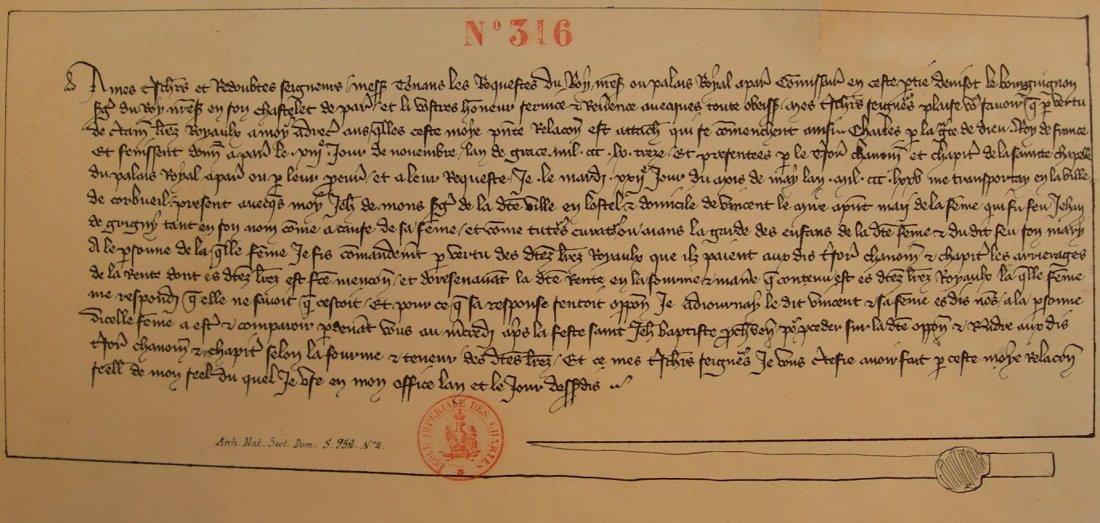 Nº 316
A mes tschrs et Redoubtes seigneurs messrs tenans les Requestes du Roy nreß ou palais Royal a par Commissairs en ceste ptie Denisot le bourguignon
sgt du Roy nreß en son chastelet de par et li vostres honeur service & Reverence avecques toute obeiss mes tschrs seigneurs plaise vo savoir q p vertu
de lres Royaulx a moy ans qlles ceste moye pnte Relacon est attach qui se comenchent ainsi Charles p la gre de dieu Roy de france
Et fenissent donn a par le xiije Jour de novembre lan de grace mil ccc lx treze Et presentees p le tsor chanoin et chapit de la saincte chapelle
du palais Royal a par ou p leur procur et a leur Requeste Je le mardi xviie Jour du mois de may lan mil ccc me transportay en la ville
de corbueil present avecqs moy Jeh de mons sgt de la dte ville en lostel & domicile de vincent le mire apnt mary de la feme qui fu feu Jehan
de grigny tant en son nom come a cause de sa feme et come tuters curateur aians la garde des enfans de la dte feme & du dit feu son mary
A le psonne de la qlle feme Je fis comandemt p vertu des dtez lrez Royaulx que ilz paient aux dis tsor chanoin & chapit les arrierages
de la Rente dont es dtez lrez est fce mencon et doresenavant la dte Rente en la fourme & maniere q contenu est es dtez lrez Royaulx la qlle feme
me respondi q elle ne savoit q cestoit Et pour ce q sa response sentoit oppon Je adiournay le dit vincent & sa feme es dis nos a la psonne
dicelle feme a est & comparoir p denat vous au mcedi aps la feste saint Jeh baptiste pchven po pceder sur la dte oppon & Rendre aux dis
tsor chanoin & chapit selon la fourme & teneur des dtes lrez Et ce mes tschrs seigneurs Je vous certefie avoir fait p ceste moye Relacon
seell de mon seel du quel Je use en mon office lan et le Jour dessusdis
Arch. Nat. Sect. Dom. S. 952. Nº 2.
ÉCOLE IMPÉRIALE DES CHARTES